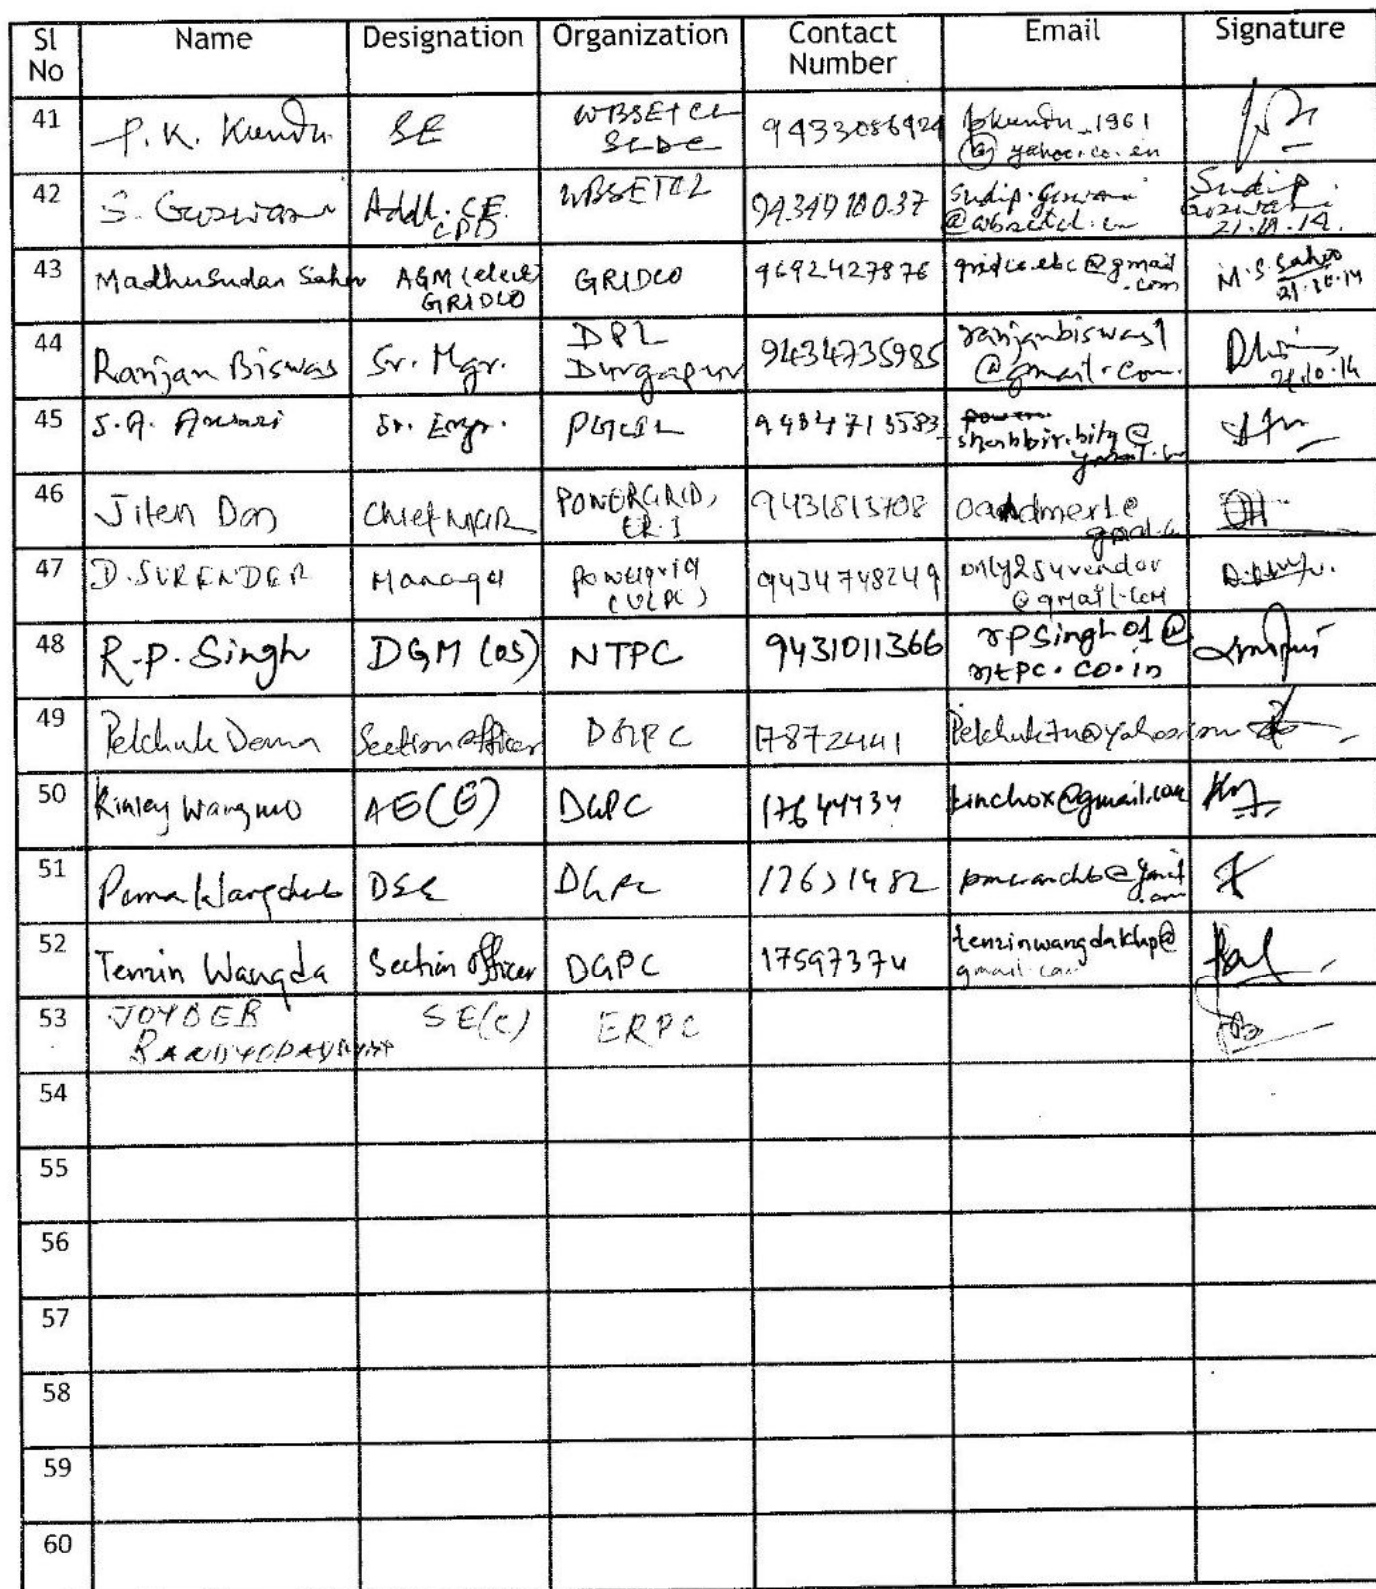 Sl No Name Designation Organization Contact Number Email Signature
41 P. K. Kundu SE WBSETCL SLDC 9433086924 pkundu_1961 @ yahoo.co.in
42 S. Goswami Addl. CE. CPD WBSETCL 9434910037 sudip.goswami @wbsetcl.in Sudip Goswami 21.10.14.
43 Madhusudan Sahoo AGM (elect) GRIDCO GRIDCO 9692427876 gridco.ebc@gmail.com M.S. Sahoo 21.10.14
44 Ranjan Biswas Sr. Mgr. DPL Durgapur 9434735985 ranjanbiswas1 @gmail.com. 21.10.14
45 S.A. Sr. Engr. 9434713583
46 Jiten Das Chief MGR POWERGRID, ER-I
47 D. SURENDER Manager Powergrid 9434748249 only2surendar @gmail.com
48 R.P. Singh DGM (OS) NTPC 9431011366 rpsingh01@ ntpc.co.in
49 Pelchuk Dema Section officer DGPC 17872441
50 Kinley Wangmo AE(E) DGPC 17644434 kinchox@gmail.com
51 Pema Wangchuk DGPC 17631482
52 Tenzin Wangda Section officer DGPC tenzinwangdaklup@ gmail.com
53 JOYDEB BANDYOPADHYAY SE(C) ERPC
54
55
56
57
58
59
60